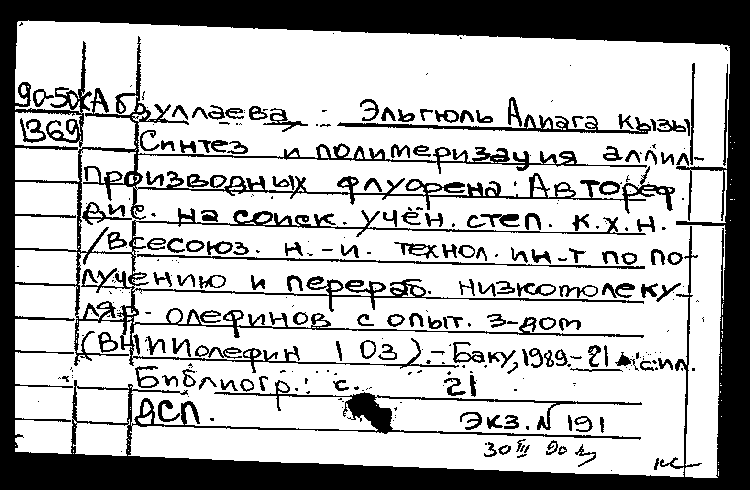 90-50к Абдуллаева, Эльгюль Алиага кызы
1369
Синтез и полимеризация аллил-
производных флуорена: Автореф.
дис. на соиск. учён. степ. к.х.н.
/Всесоюз. н.-и. технол. ин-т по по-
лучению и перераб. низкомолеку-
ляр. олефинов с опыт. з-дом
(ВНИИолефин 103).- Баку, 1989.- 21 с. ил.
Библиогр.: с. 21
ДСП. Экз. N 191
30 III 90